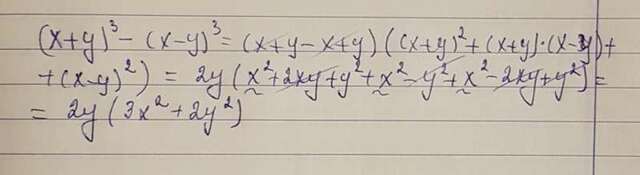 (x+y)³ - (x-y)³ = (x+y-x+y)((x+y)²+(x+y)·(x-y)+
+(x-y)²) = 2y(x²+2xy+y²+x²-y²+x²-2xy+y²) =
= 2y(3x²+2y²)